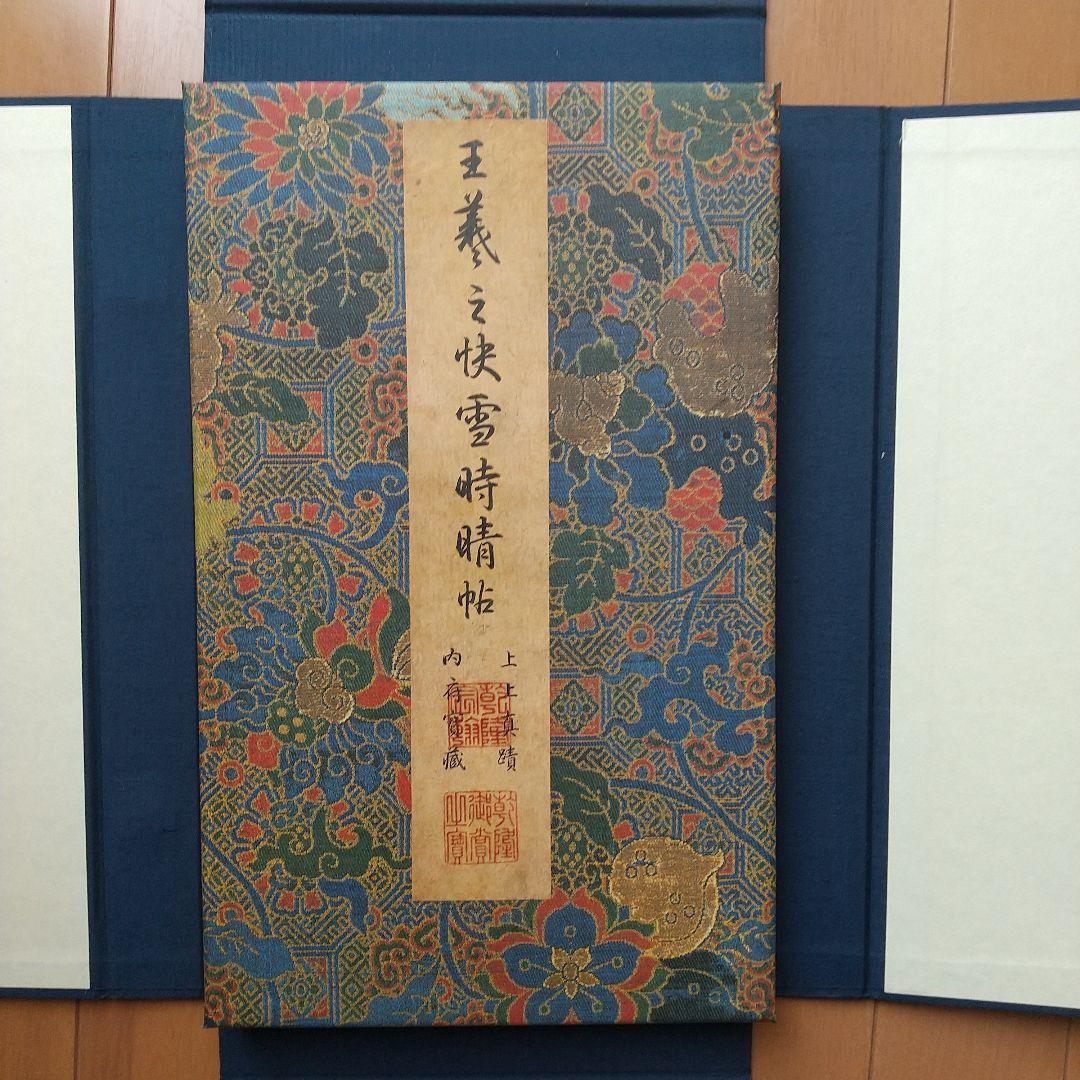 王羲之快雪時晴帖
上上真蹟
內府寶藏
乾隆
宸翰
乾隆
御賞
之寶